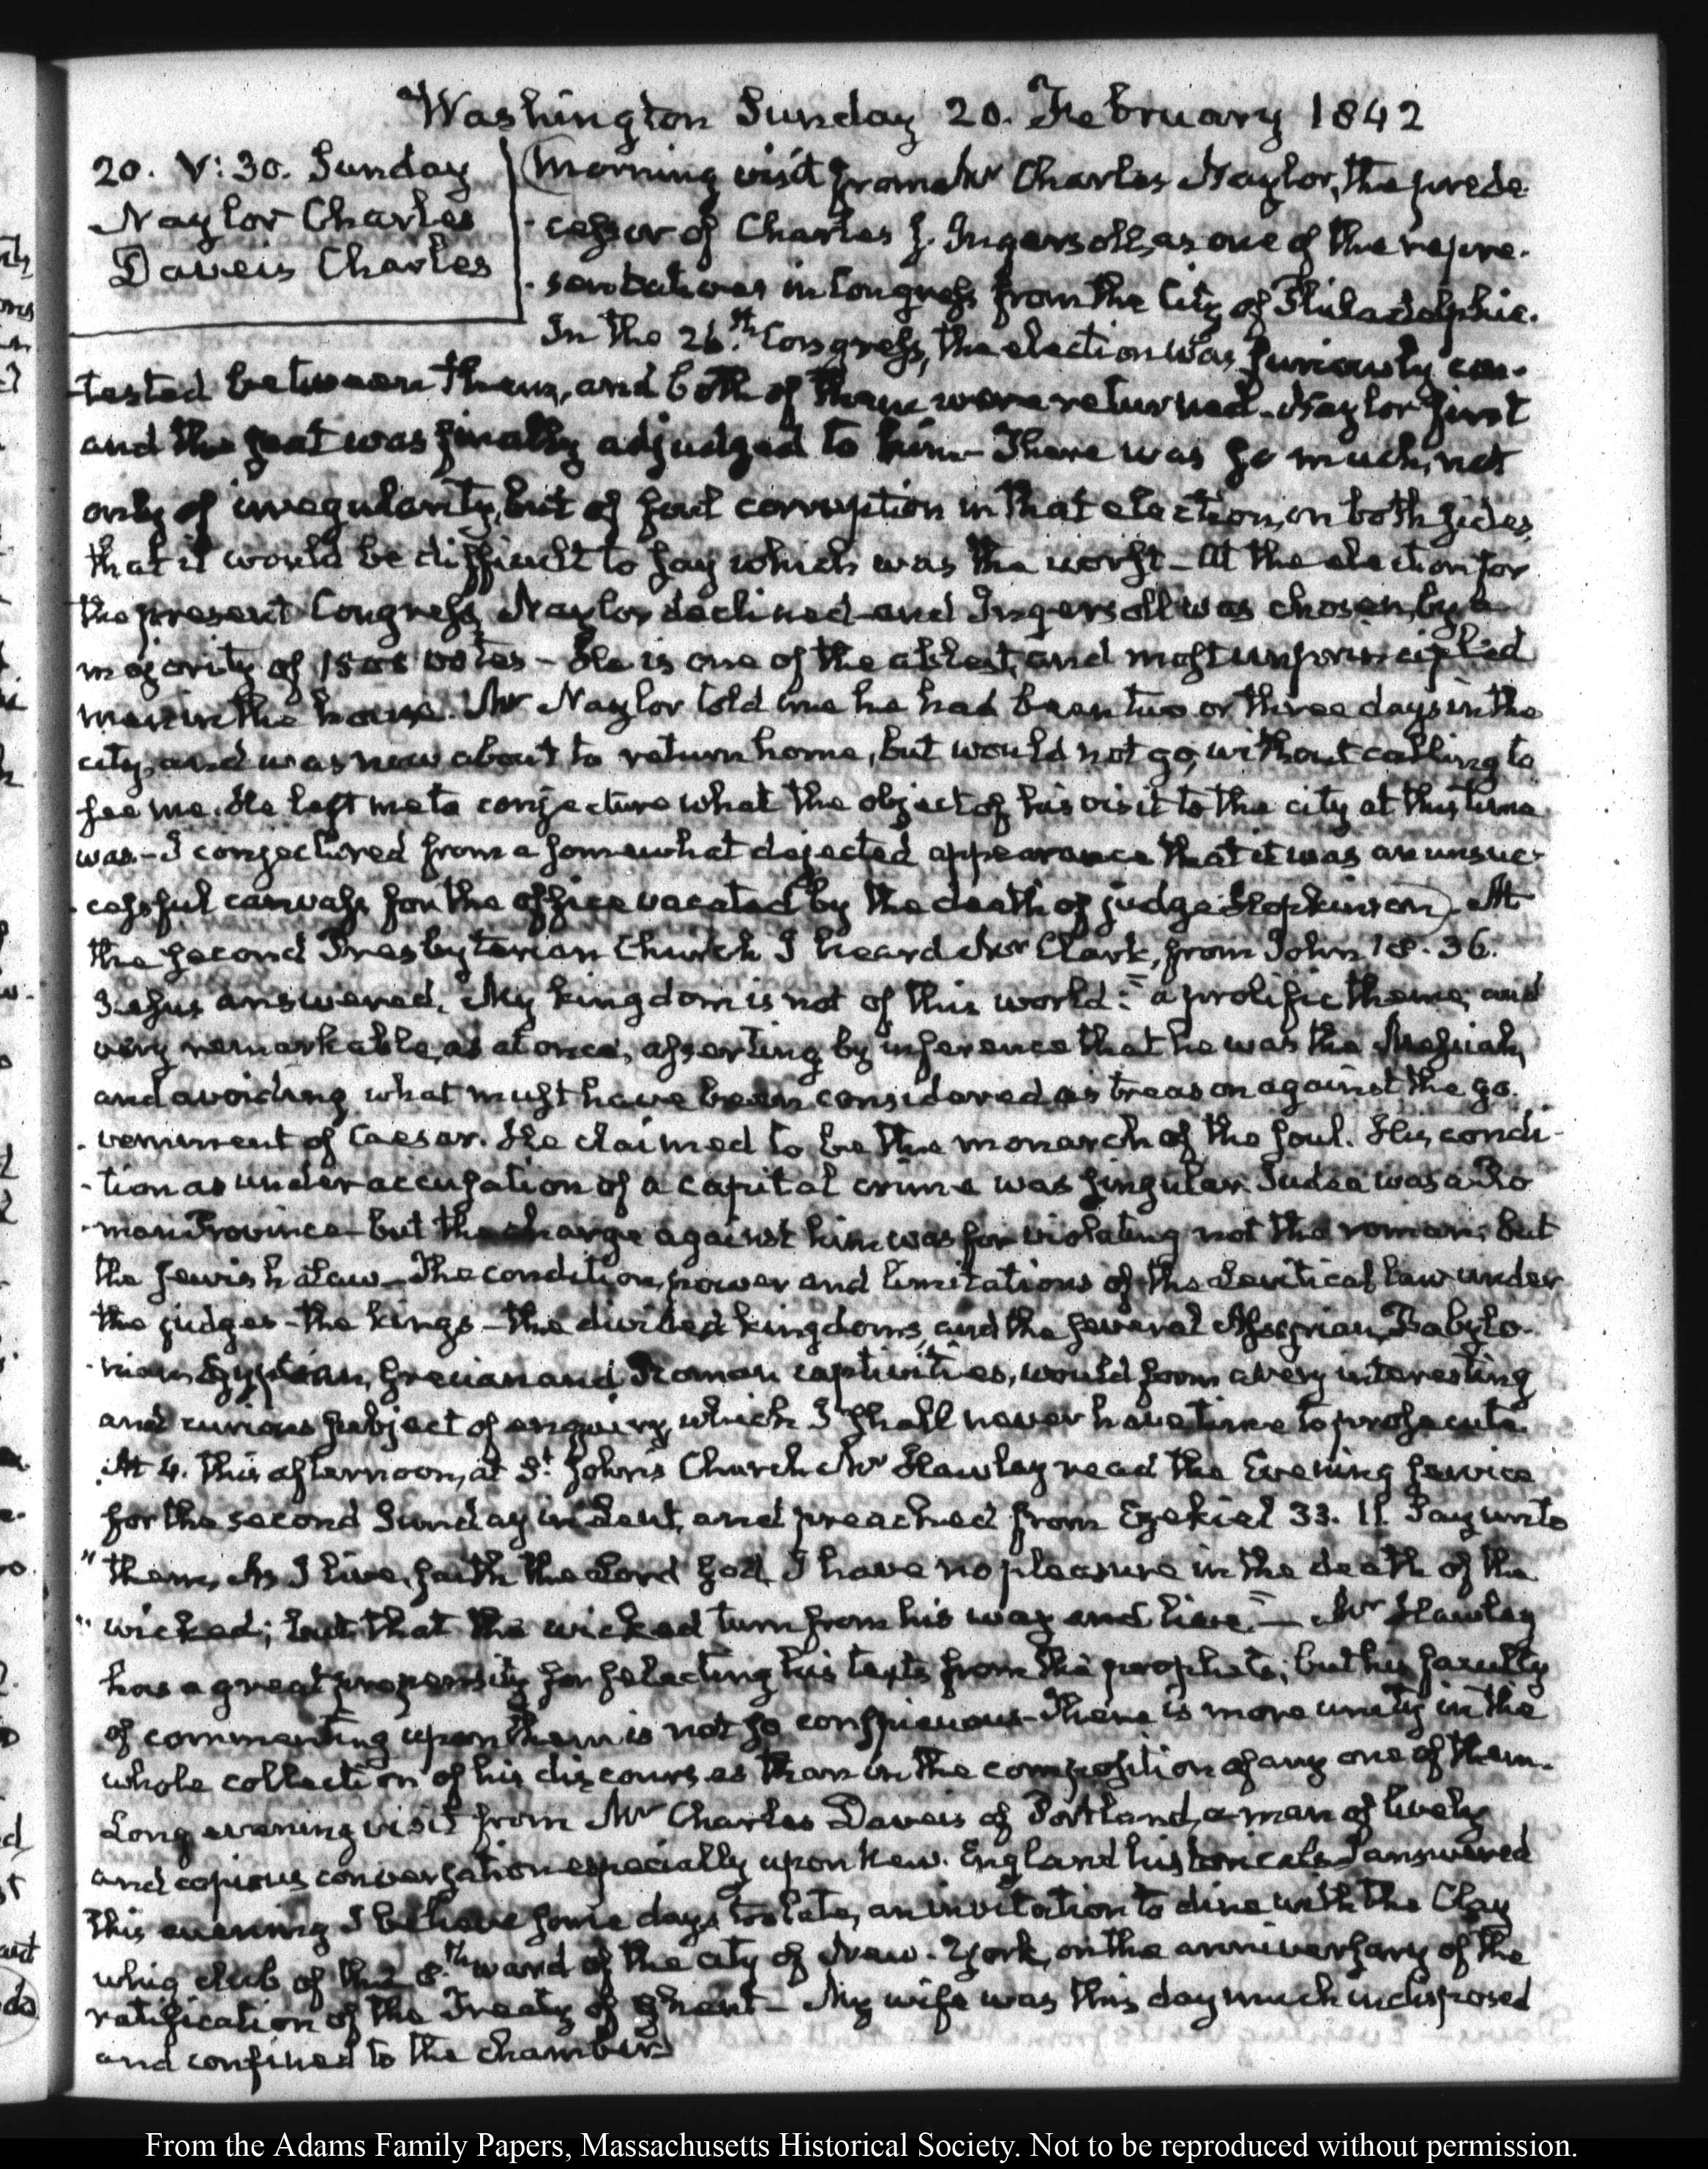 Washington Sunday 20. February 1842
20. V:30. Sunday
Naylor Charles
Daveis Charles
Morning visit from Mr Charles Naylor, the prede
cessor of Charles J. Ingersoll, as one of the repre-
sentatives in Congress from the City of Philadelphia.
In the 26.th Congress, the election was furiously con-
tested between them, and both of them were returned - Naylor first
and the seat was finally adjudged to him - There was so much, not
only of irregularity, but of foul corruption in that election, on both sides,
that it would be difficult to say which was the worst - At the election for
the present Congress, Naylor declined - and Ingersoll was chosen, by a
majority of votes - He is one of the ablest, and most unprincipled
men in the house. Mr Naylor told me he had been two or three days in the
city, and was now about to return home, but would not go, without calling to
see me. He left me to conjecture what the object of his visit to the city at this time
was - I conjectured from a somewhat dejected appearance that it was an unsuc-
cessful canvass for the office vacated by the death of judge Hopkinson). At
the second Presbyterian Church I heard Mr Clark, from John 18. 36.
Jesus answered, My kingdom is not of this world:" a prolific theme; and
very remarkable, as at once, asserting by inference that he was the Messiah,
and avoiding what must have been considered as treason against the go-
vernment of Caesar. He claimed to be the monarch of the soul. His condi-
tion as under accusation of a capital crime was singular. Judea was a Ro
man Province - but the charge against him was for violating not the roman, but
the jewish Law - The condition, power and limitations of the Levitical law under
the judges - the kings - the divided kingdoms, and the several Assyrian, Babylo-
nian, Egyptian, Grecian and Roman captivities, would form a very interesting
and curious subject of enquiry, which I shall never have time to prosecute.
At 4. this afternoon, at St. John's Church Mr Hawley read the Evening service
for the second Sunday in Lent, and preached from Ezekiel 33. 11. Say unto
"them, As I live, saith the Lord God, I have no pleasure in the death of the
"wicked; but that the wicked turn from his way and live" — Mr Hawley
has a great propensity for selecting his texts from the prophets; but his faculty
of commenting upon them is not so conspicuous - There is more unity in the
whole collection of his discourses than in the composition of any one of them.
Long evening visit from Mr Charles Daveis of Portland, a man of lively
and copious conversation especially upon New-England I answered
this evening I believe some days too late, an invitation to dine with the Clay
whig club of the 8.th ward of the city of New-York, on the anniversary of the
ratification of the Treaty of Ghent - My wife was this day much indisposed
and confined to the chamber.
From the Adams Family Papers, Massachusetts Historical Society. Not to be reproduced without permission.